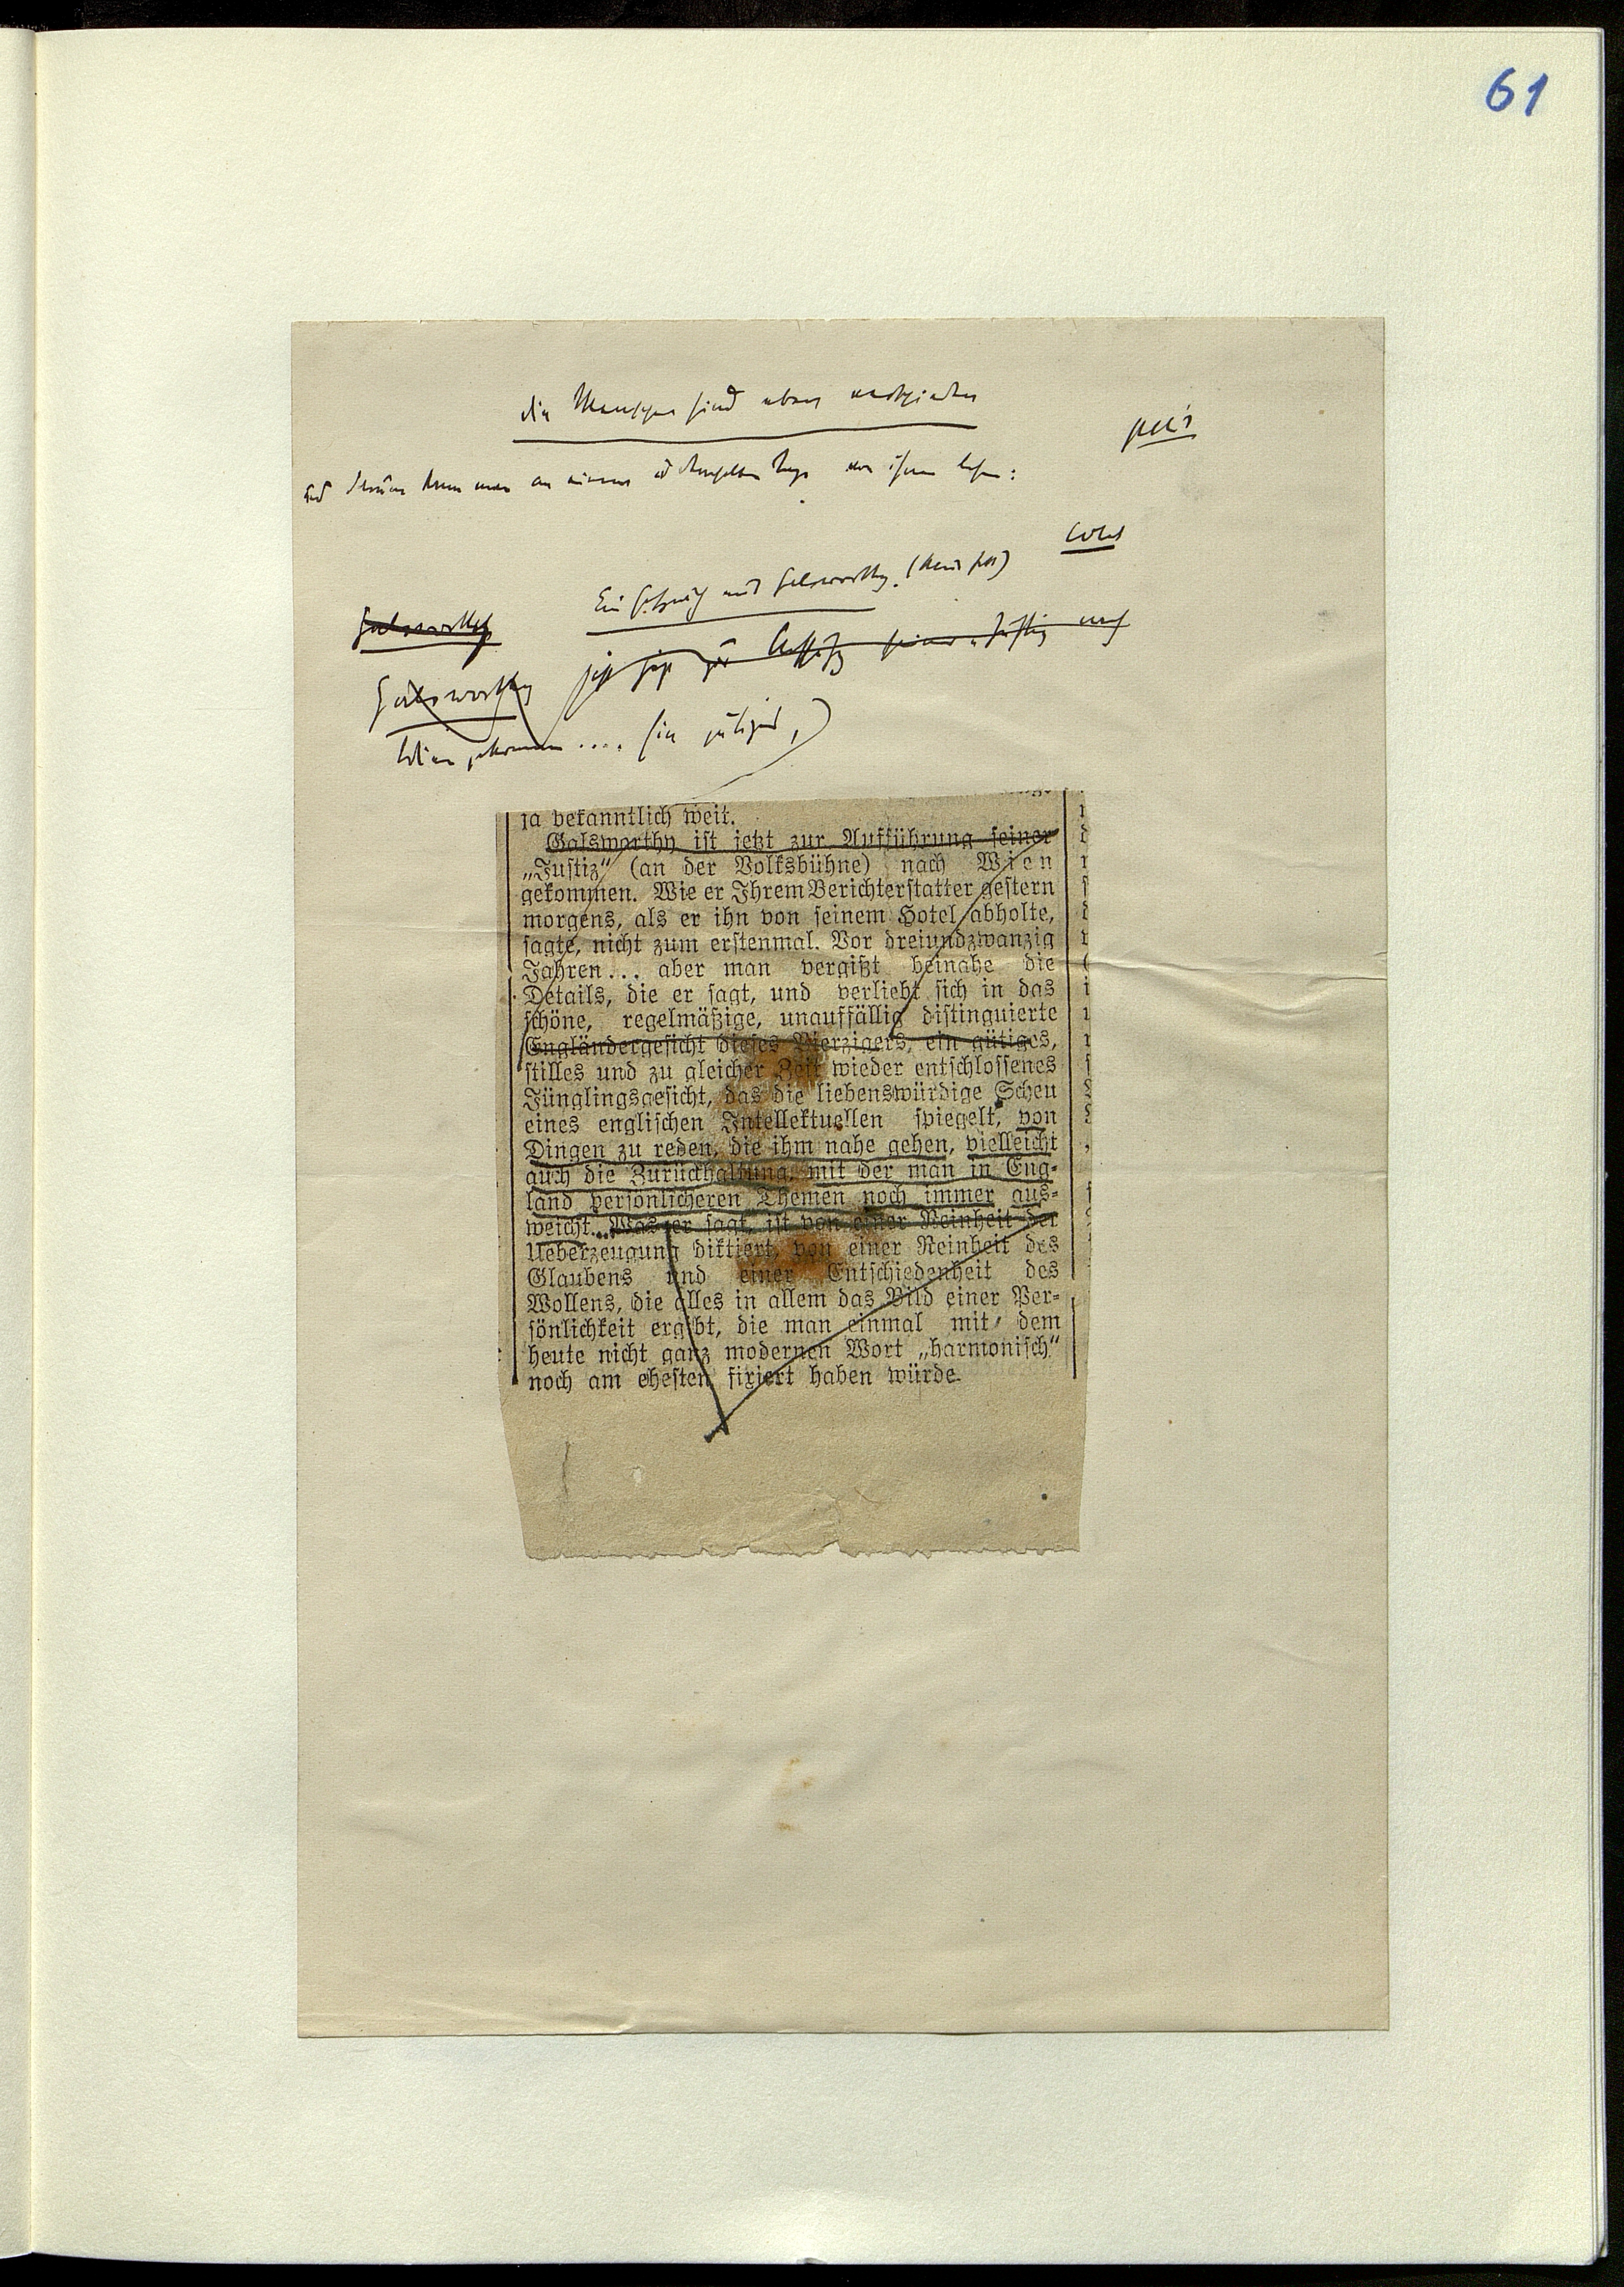 61
die Menschen sind eben verschieden
und darum kann man an einem u demselben Tage von ihnen lesen:
Ein Gespräch mit Galsworthy.
Galsworthy
Galsworthy jetzt zur Aufführung seiner „Justiz nach
Wien gekommen .... (ein gütiges,)
ja bekanntlich weit.
Galsworthy ist jetzt zur Aufführung seiner
„Justiz“ (an der Volksbühne) nach Wien
gekommen. Wie er Ihrem Berichterstatter gestern
morgens, als er ihn von seinem Hotel abholte,
sagte, nicht zum erstenmal. Vor dreiundzwanzig
Jahren... aber man vergißt beinahe die
Details, die er sagt, und verliebt sich in das
schöne, regelmäßige, unauffällig distinguierte
Engländergesicht dieses Vierzigers, ein gütiges,
stilles und zu gleicher Zeit wieder entschlossenes
Jünglingsgesicht, das die liebenswürdige Scheu
eines englischen Intellektuellen spiegelt, von
Dingen zu reden, die ihm nahe gehen, vielleicht
auch die Zurückhaltung, mit der man in Eng-
land persönlicheren Themen noch immer aus-
weicht... Was er sagt, ist von einer Reinheit der
Ueberzeugung diktiert, von einer Reinheit des
Glaubens und einer Entschiedenheit des
Wollens, die alles in allem das Bild einer Per-
sönlichkeit ergibt, die man einmal mit dem
heute nicht ganz modernen Wort „harmonisch“
noch am ehesten fixiert haben würde.